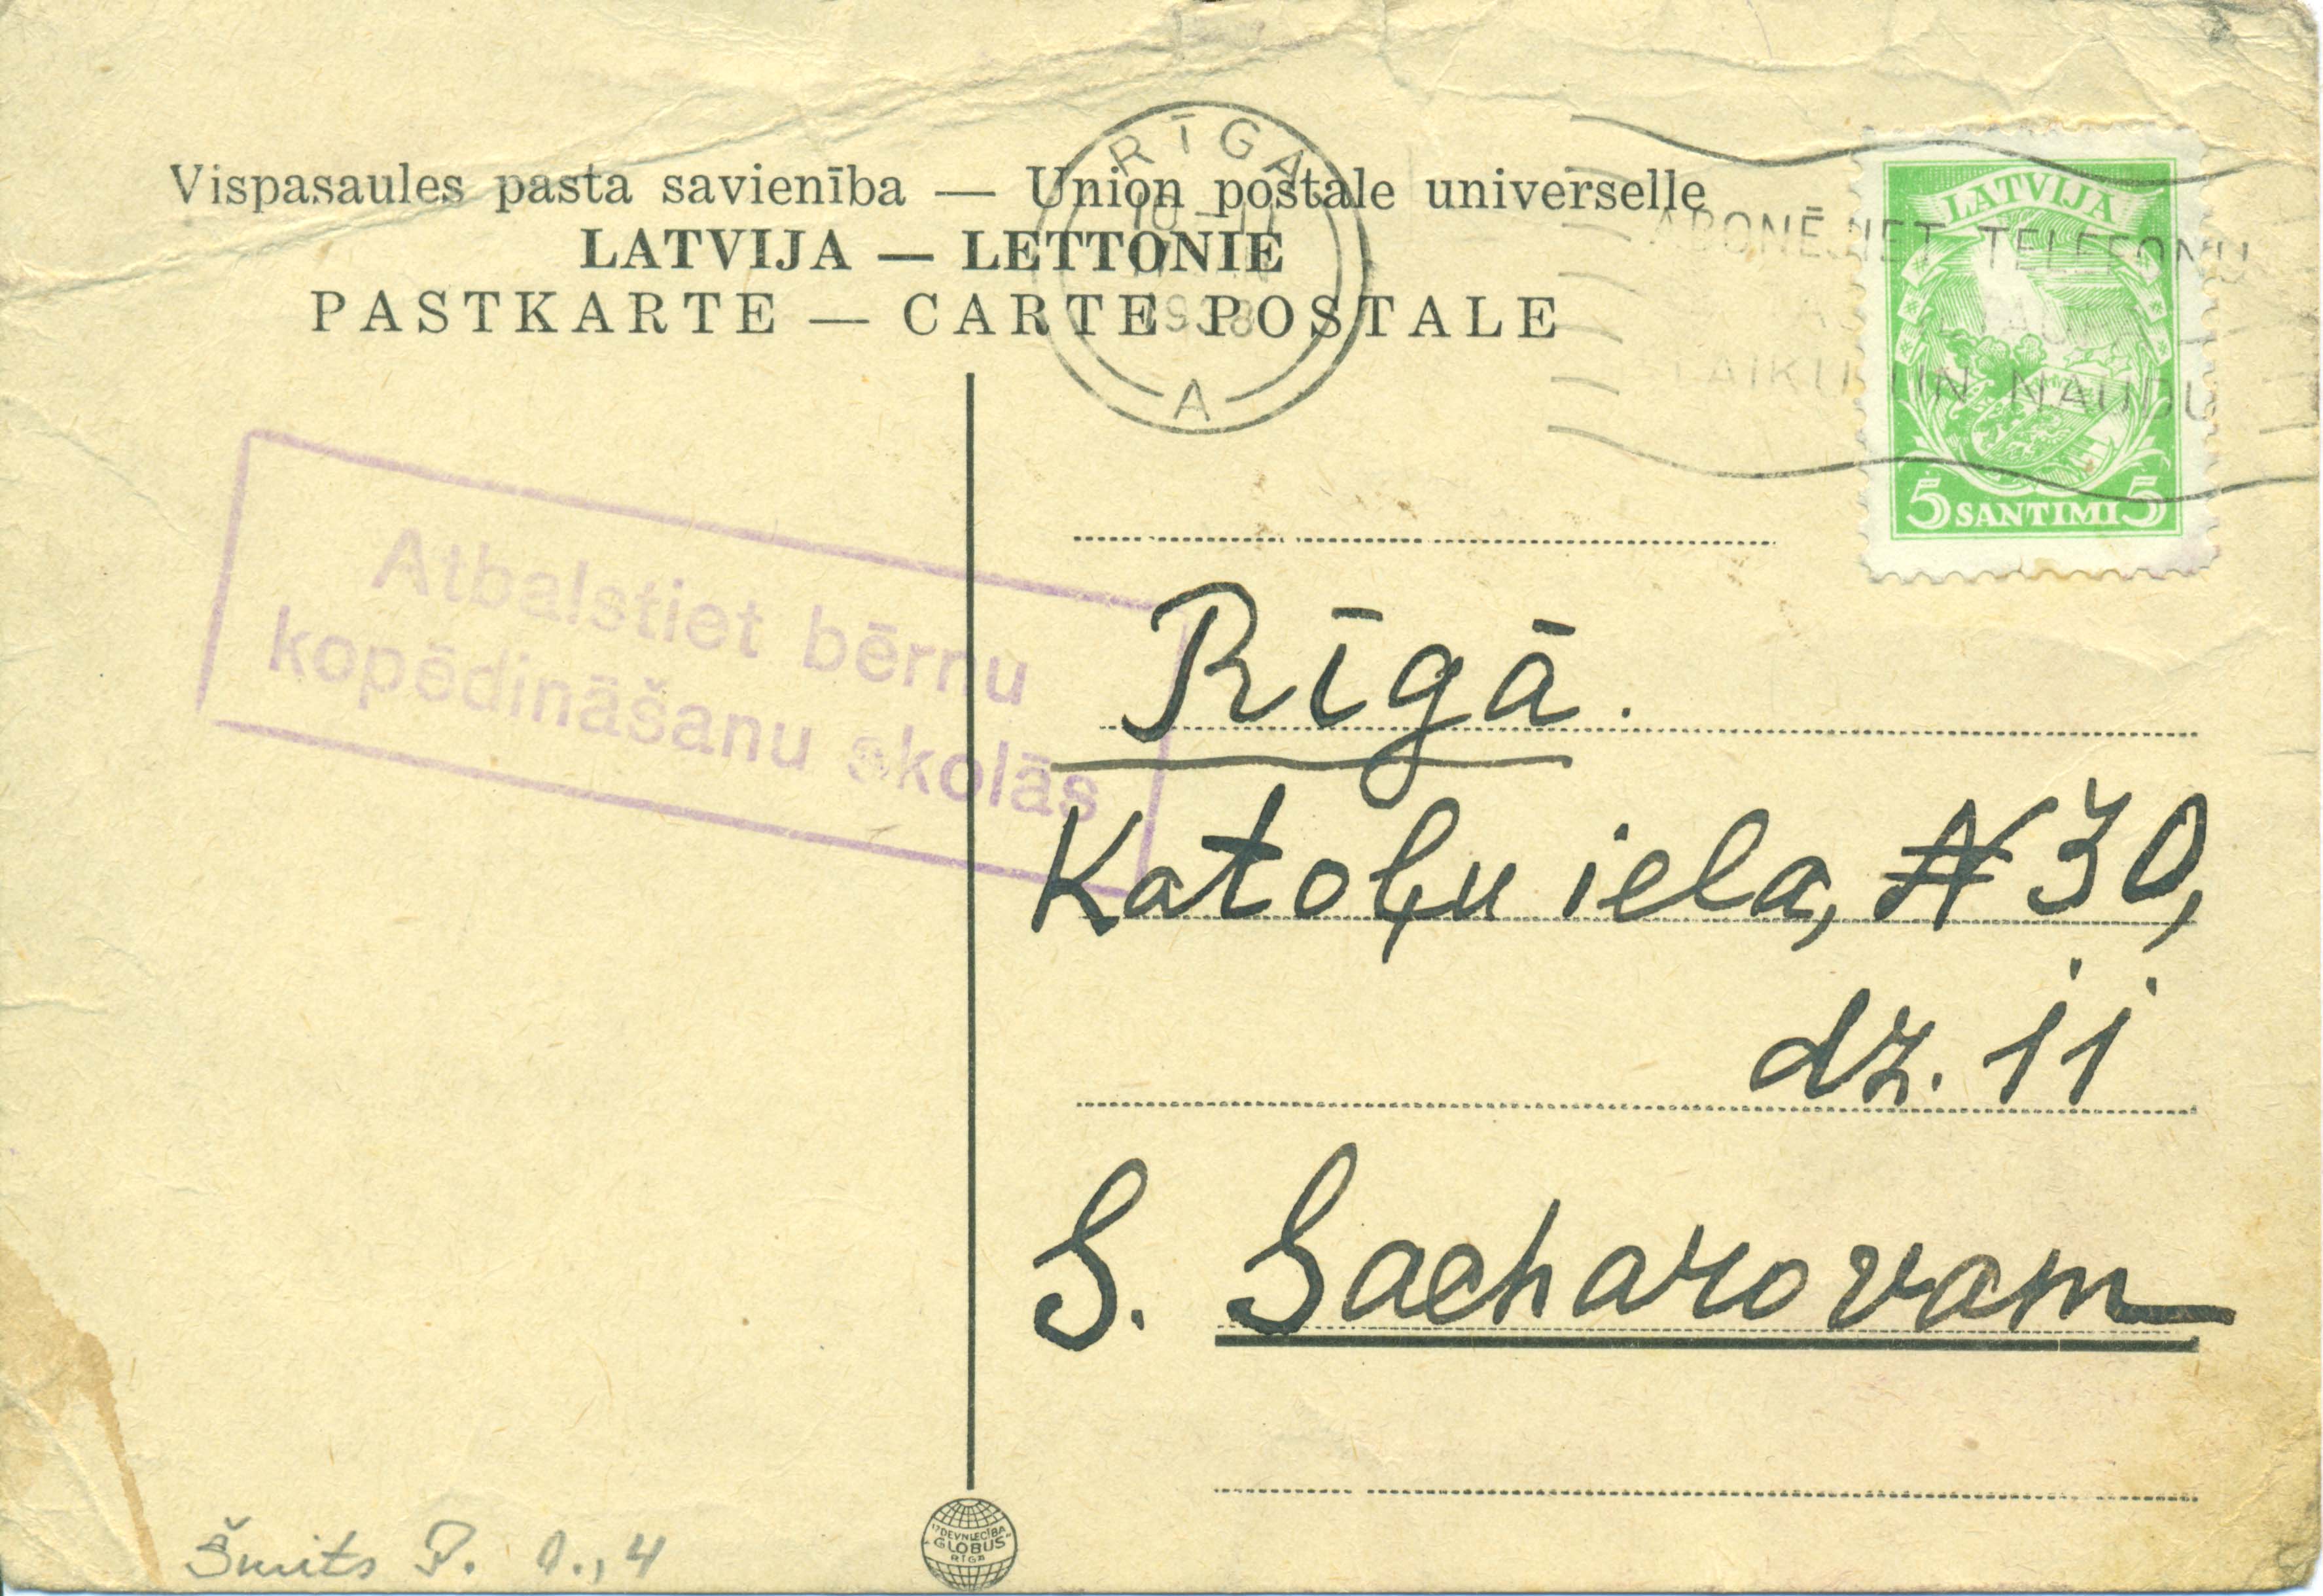 Vispasaules pasta savienība — Union postale universelle
LATVIJA — LETTONIE
PASTKARTE — CARTE POSTALE
RĪGA
A
ABONĒJIET TELEFONU
LAIKU UN NAUDU
LATVIJA
5 SANTIMI 5
Atbalstiet bērnu
kopēdināšanu skolās
Rīgā.
Katoļu iela, N 30,
dz. 11
S. Sacharovam
IZDEVNIECĪBA
"GLOBUS"
RĪGĀ
Šmits P. 1., 4